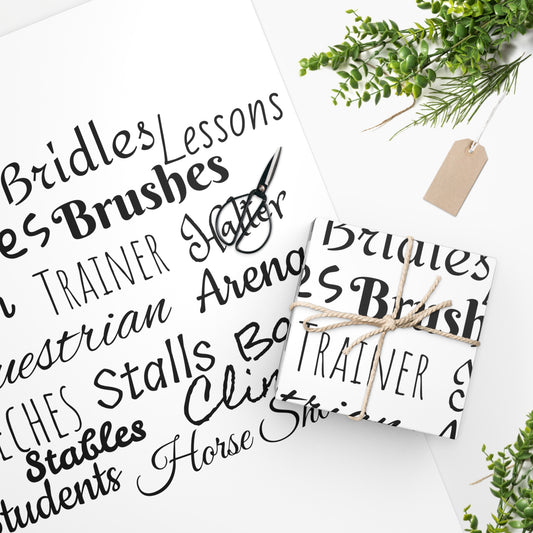 Bridles Lessons
es Brushes
TRAINER Halter
uestrian Arena
ECHES Stalls Bo
Stables Clin
Students Horse Sho
Bridles
es Brush
TRAINER